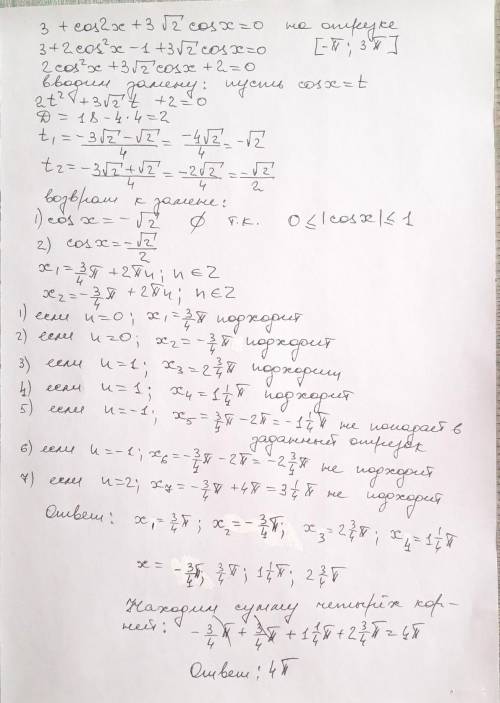 3 + cos2x + 3√2 cosx = 0 на отрезке
3 + 2cos²x - 1 + 3√2 cosx = 0 [-π; 3π]
2cos²x + 3√2 cosx + 2 = 0
вводим замену: пусть cosx = t
2t² + 3√2 t + 2 = 0
D = 18 - 4·4 = 2
t₁ = (-3√2 - √2)/4 = -4√2/4 = -√2
t₂ = (-3√2 + √2)/4 = -2√2/4 = -√2/2
возврат к замене:
1) cos x = -√2 ∅ т.к. 0 ≤ |cosx| ≤ 1
2) cosx = -√2/2
x₁ = 3/4 π + 2πn; n ∈ Z
x₂ = -3/4 π + 2πn; n ∈ Z
1) если n=0; x₁ = 3/4 π подходит
2) если n=0; x₂ = -3/4 π подходит
3) если n=1; x₃ = 2 3/4 π подходит
4) если n=1; x₄ = 1 1/4 π подходит
5) если n=-1; x₅ = 3/4 π - 2π = -1 1/4 π не попадает в
заданный отрезок
6) если n=-1; x₆ = -3/4 π - 2π = -2 3/4 π не подходит
7) если n=2; x₇ = -3/4 π + 4π = 3 1/4 π не подходит
Ответ: x₁ = 3/4 π; x₂ = -3/4 π; x₃ = 2 3/4 π; x₄ = 1 1/4 π
x = -3/4 π; 3/4 π; 1 1/4 π; 2 3/4 π
Находим сумму четырёх кор-
ней: -3/4 π + 3/4 π + 1 1/4 π + 2 3/4 π = 4π
Ответ: 4π